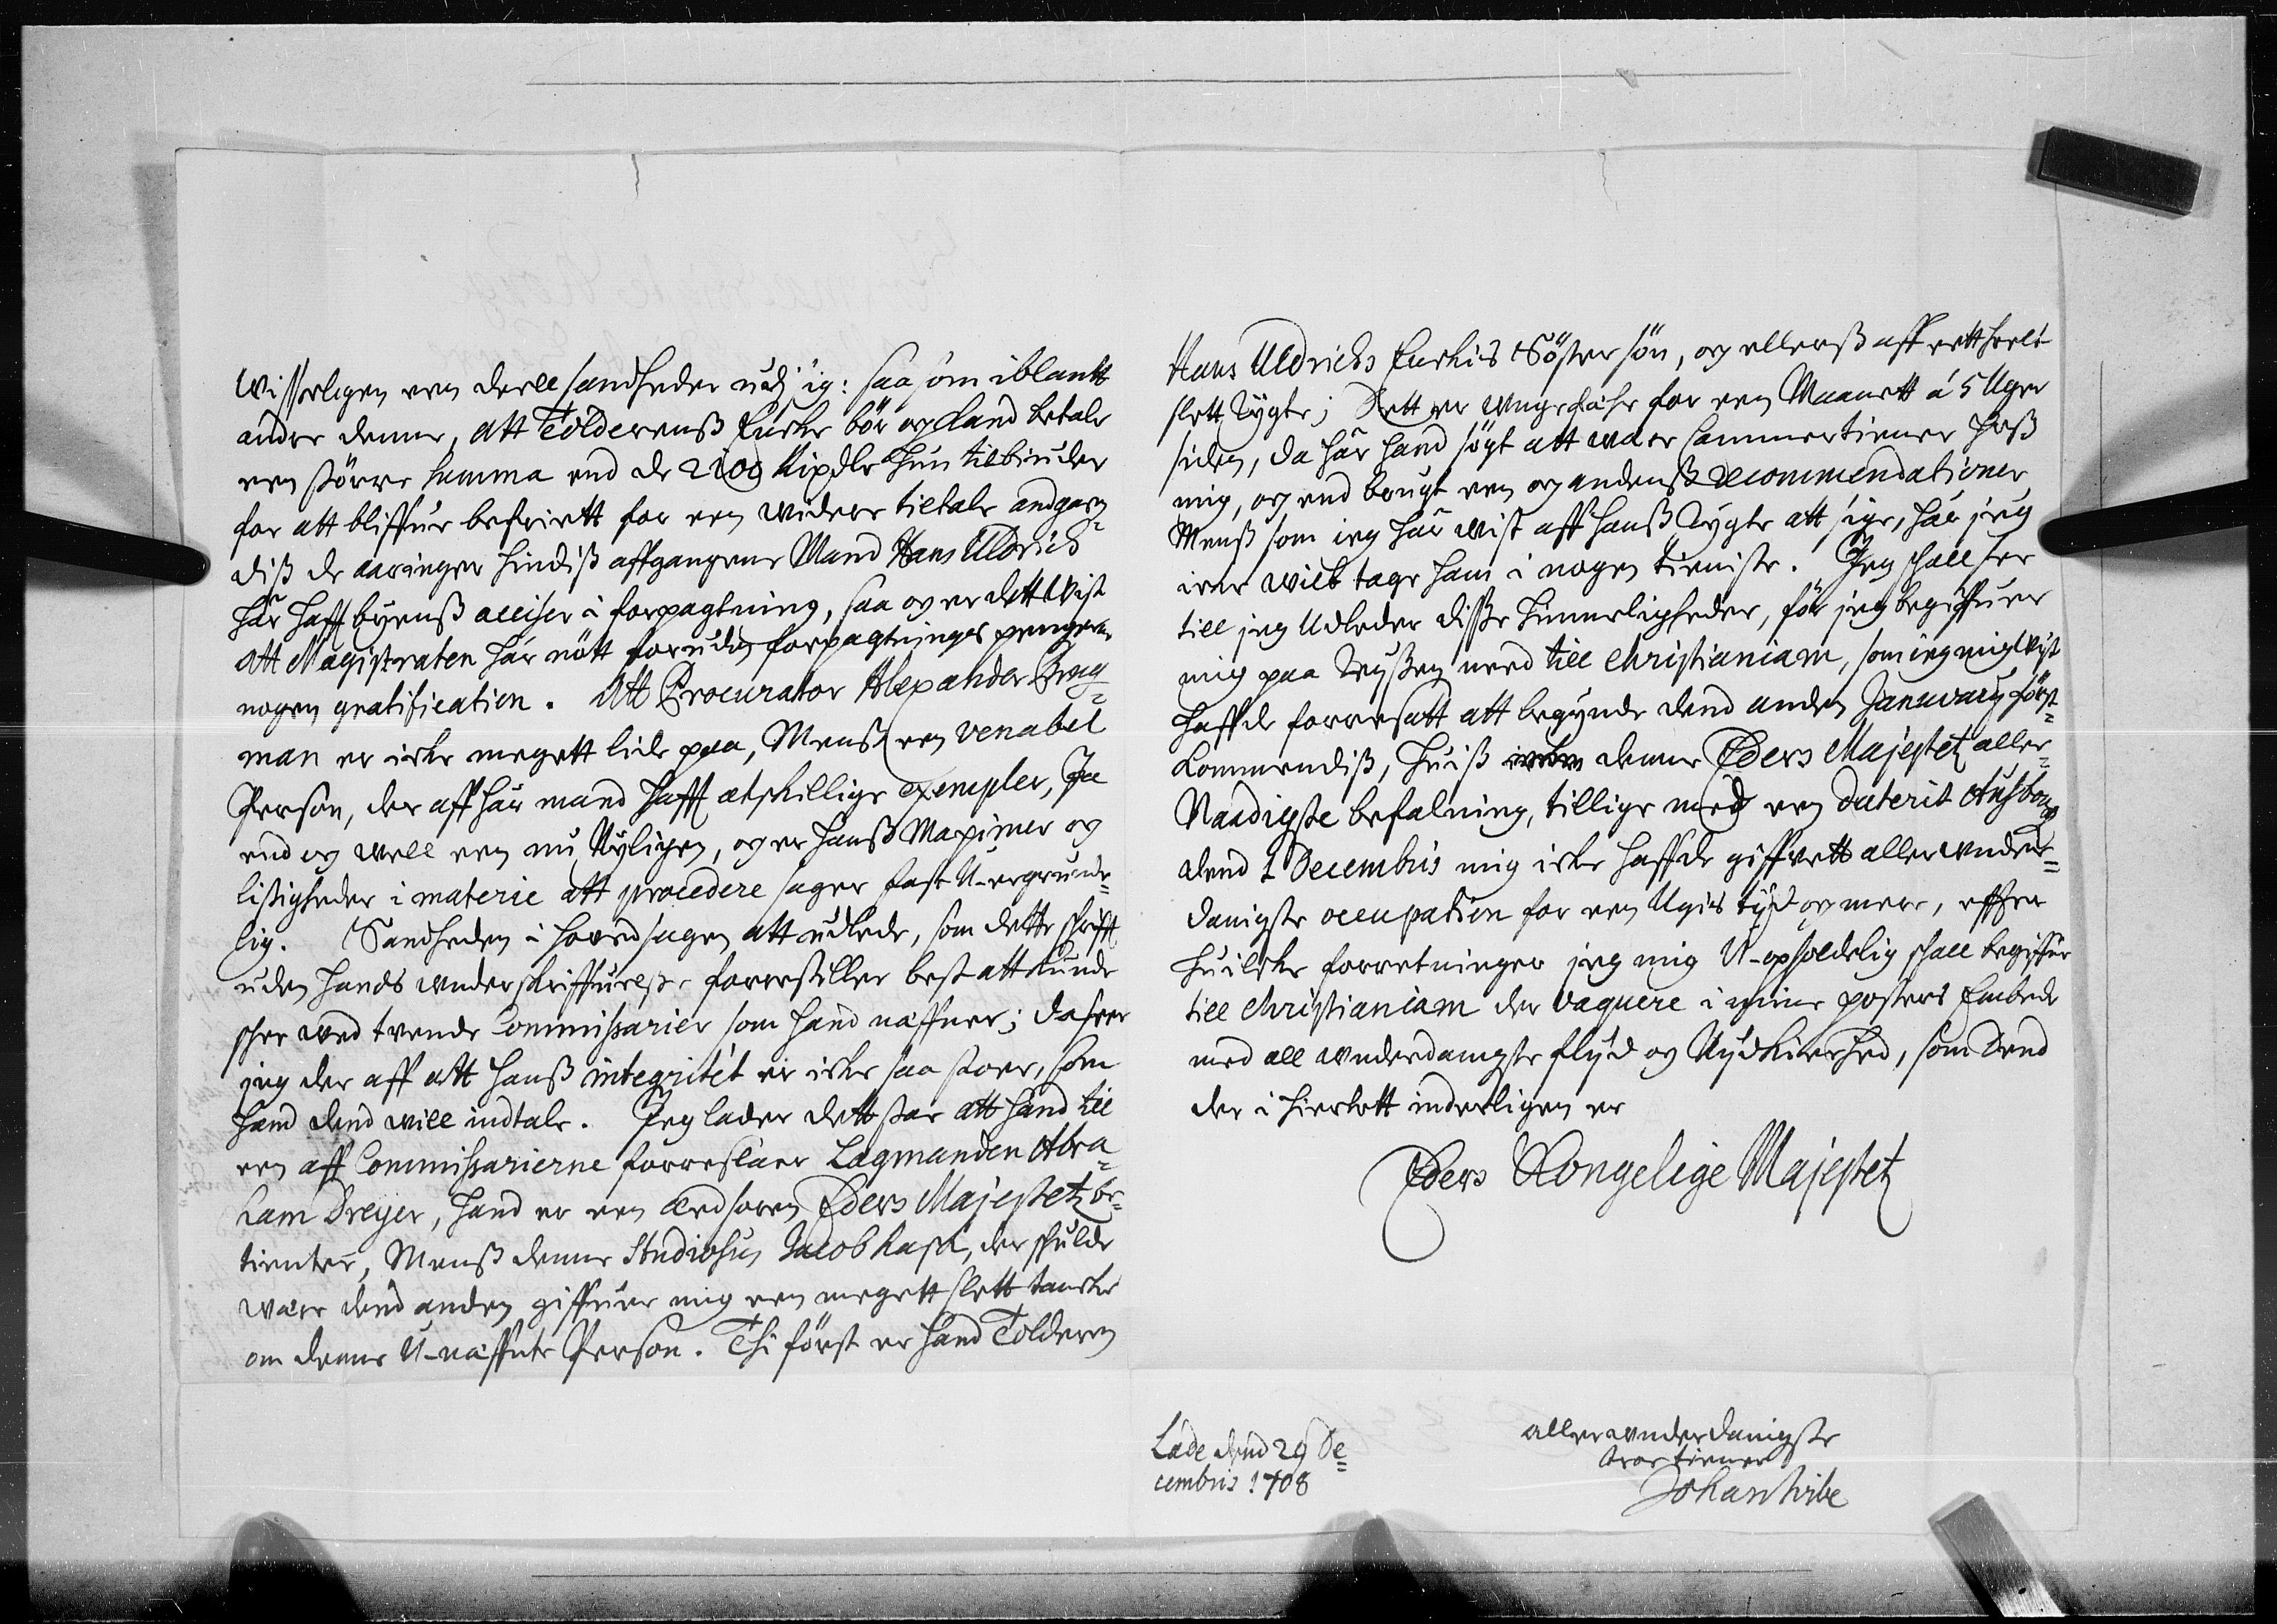 Wisseligen een deell sandheder udj sig: saasom iblantt
andre denne, att Tolderenß Encke bör og kand betale
een större summa end de 2100 Rixdlr hun tilbiuder
for att bliffue befriett for een widere tiltale andgaaen¬
diß de aaringer hindiß affgangene Mand Hans Uldrich
här hafft byenß acciser i forpagtning, saa og er dett Wist
Att Magistraten här nött foruden forpagtninges pengerne
nogen gratification. Att Procurator Alexander Brug¬
man er icke megett lide paa, Menß een venabel
Person, der aff här mand hafft atskillige Exempler, Ja
end og well een nu Nyligen, og er hanß Maximer og
listigheder i materie att procedere sager fast U-ergrunde¬
lig. Sandheden i hovedsagen att udlede, som dette skrifft
uden hands underskriffuelße forrestiller best att kunde
skee ved tvende Commissarier som hand näffner; da seer
jeg der aff att hanß integritét er icke saa stoer, som
hand dend will indtale. Jeg lader dett staa att hand till
een aff Commissarierne forreslaaer Lagmanden Abra¬
ham Dreyer, hand er een Eedsoren Eders Majestetz be¬
tienter, Menß denne Studiosus Jacob Rasch, der skulde
være dend anden giffuer mig een megett slett tancke
om denne U-näffnte Person. Thi först er hand Tolderen
Hans Uldrichs Enckis Söster sön, og ellerß aff ett heelt
slett Rygte; Dett er ungefähr for een Maanett á 5 Uger
siden, da här hand sögt att være Cammertiener hoß
mig, og end brugt een og andenß Recommendationer
Menß som jeg här wist aff hanß Rygte att sige, här jeg
icke willet tage ham i nogen tieniste. Jeg skall see
till jeg Udleder disse Himmeligheder, för jeg begiffuer
mig paa Reysen need till Christianiam, som jeg mig Wist
haffde forresatt att begynde dend anden Januarij först¬
kommendiß, huiß denne Eders Majestetz aller¬
Naadigste befalning, tillige med een daterit Aufborg
dend 1 Decembris mig icke haffde giffvett allerunder¬
danigste occupation for een Ugis tijd og mere, effter
huilcke forretninger jeg mig U-opholdelig skall begiffue
till Christianiam der vaquere i mine posters Embede
med all underdanigste flijd og Nidkierhed, som dend
der i hiertett inderligen er
Eders Kongelige Majestetz
Lade dend 29 De¬
cembris 1708
allerunderdanigste
troe tiener
Johan Wibe